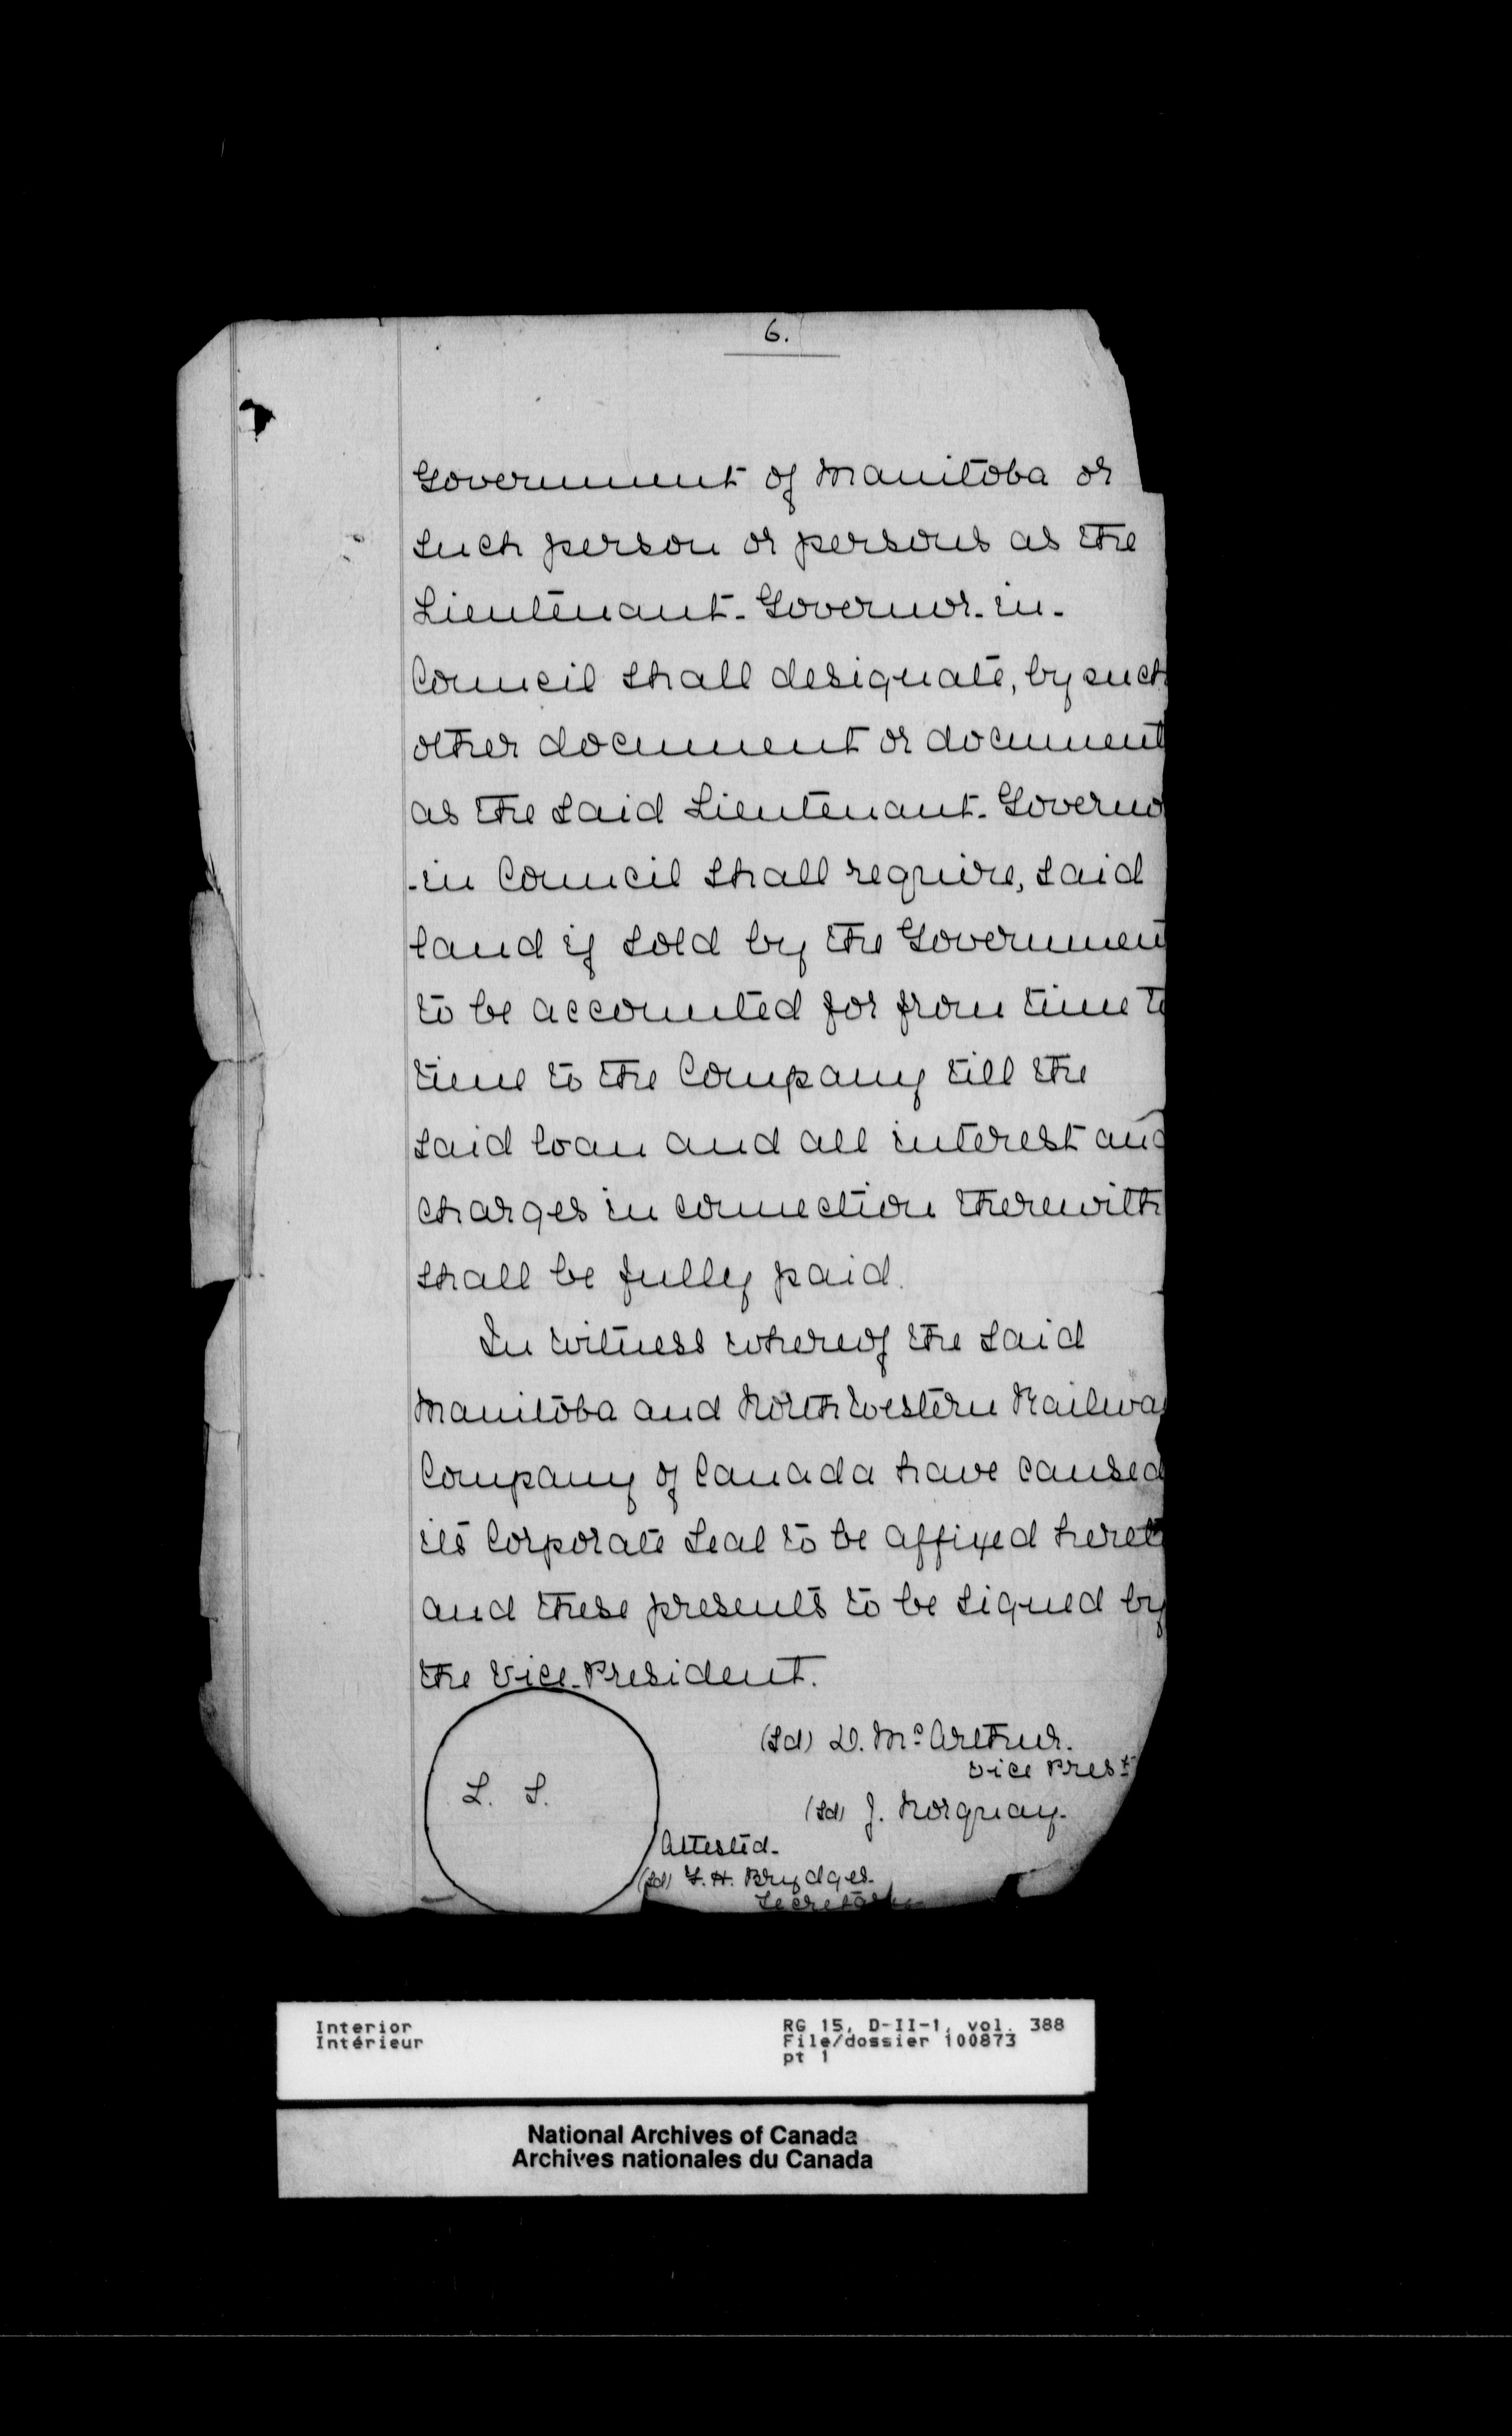 6.
Government of Manitoba or
such person or persons as the
Lieutenant-Governor-in-
Council shall designate, by such
other document or document
as the said Lieutenant-Governo
-in Council shall require, said
land if sold by the Government
to be accounted for from time to
time to the Company till the
said loan and all interest and
charges in connection therewith
shall be fully paid.
In witness whereof the said
Manitoba and North Western Railway
Company of Canada have caused
its Corporate Seal to be affixed hereto
and these presents to be signed by
the Vice-President.
(Sd) D. McArthur.
Vice Prest
L. S.
(Sd) J. Norquay.
Attested.
(Sd) F. H. Brydges.
Secretary
Interior
Intérieur
RG 15, D-II-1, vol. 388
File/dossier 100873
pt 1
National Archives of Canada
Archives nationales du Canada